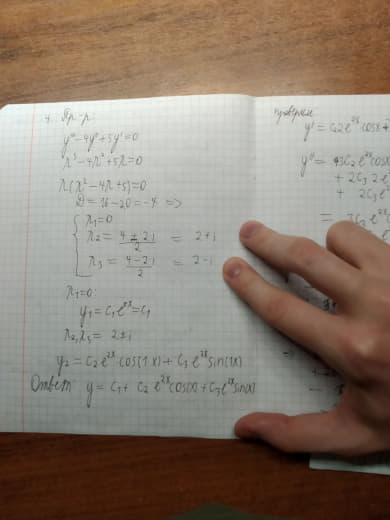 4. Пр-р:
y''' - 4y'' + 5y' = 0
λ³ - 4λ² + 5λ = 0
λ(λ² - 4λ + 5) = 0
D = 16 - 20 = -4 =>
λ₁ = 0
λ₂ = (4 + 2i)/2 = 2 + i
λ₃ = (4 - 2i)/2 = 2 - i
λ₁ = 0:
y₁ = C₁e^{0x} = C₁
λ₂, λ₃ = 2 ± i
y₂ = C₂e^{2x} cos(1x) + C₃e^{2x} sin(1x)
Ответ y = C₁ + C₂ e^{2x} cos(x) + C₃e^{2x} sin(x)
проверим
y' = C₂2e^{2x} cosx
y'' =
+ 2C₃ 2e
+ 2C₃
=